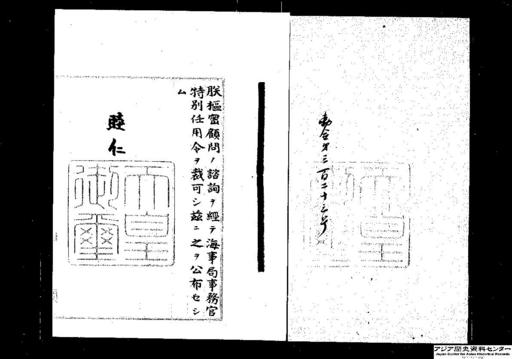 勅令第三百二十三号
朕樞密顧問ノ諮詢ヲ經テ海事局事務官
特別任用令ヲ裁可シ茲ニ之ヲ公布セシ
ム
睦仁
天皇
御璽
アジア歴史資料センター
Japan Center for Asian Historical Records